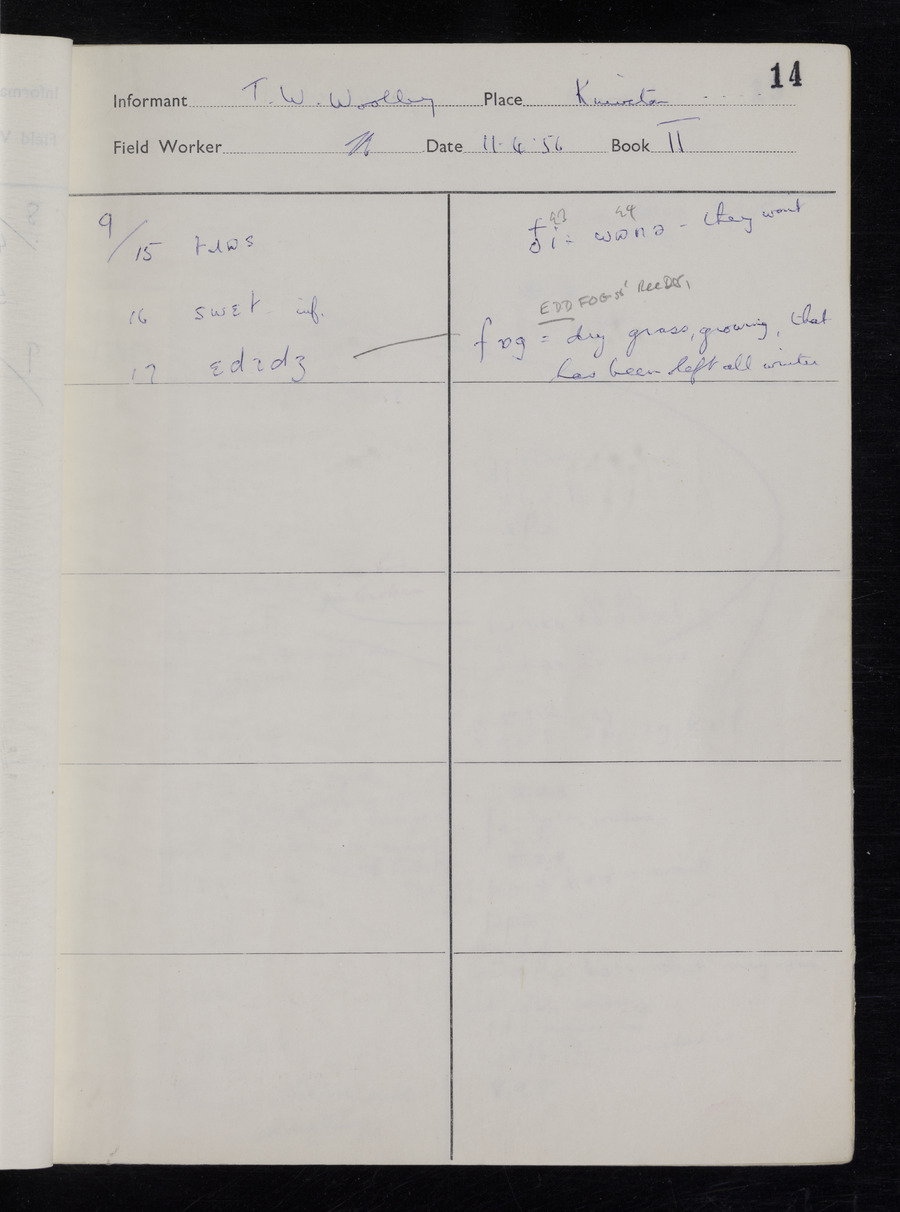 14
Informant T. W. Woolley Place Kniveton
Field Worker Date 11·4·56 Book II
9/15 tɹɒs
16 swɛt inf.
17 ɛdɪdʒ
ði: wɒnə - they won't
EDD FOG sb¹
fɒg = dry grass, growing, that
has been left all winter